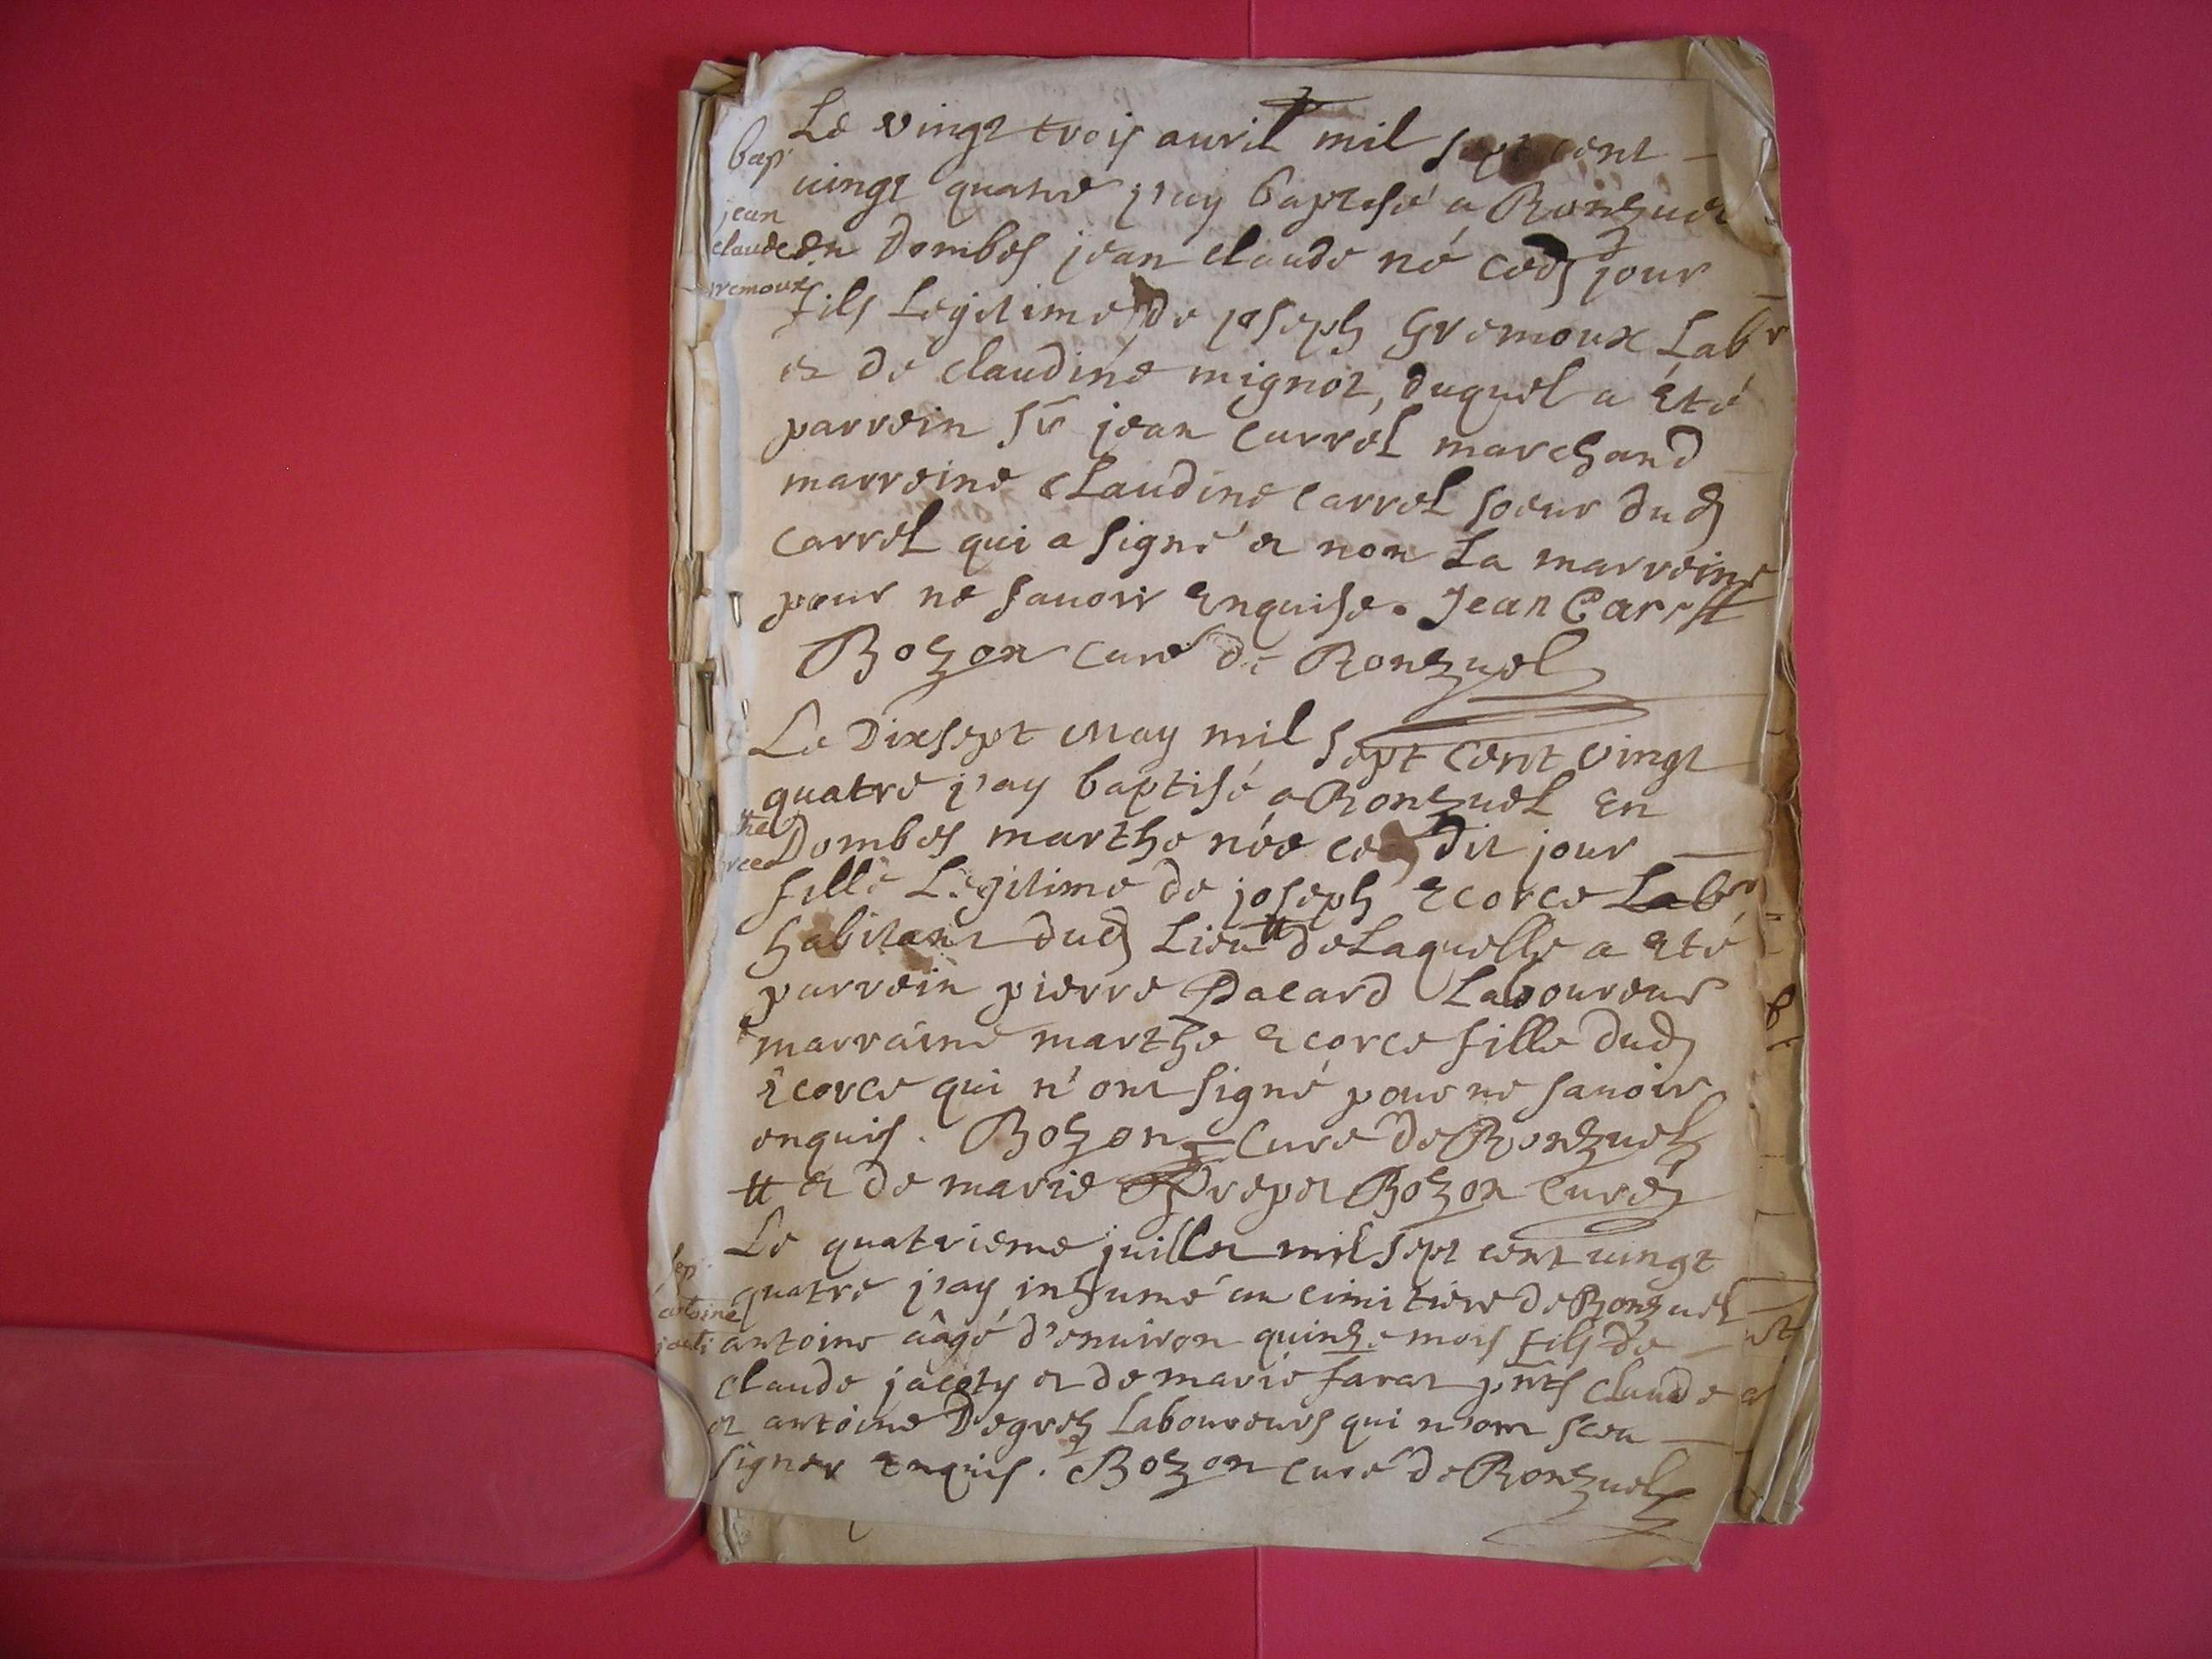 Le vingt trois auril mil sept cent
bap.
vingt quatre j'ay baptisé a Ronzuel
jean
claude
en Dombes jean claude né ced. jour
remoux
fils Legitime de joseph Gremoux Labr
et de claudine mignot, duquel a été
parrein sr jean Carrel marchand
marreine claudine Carrel soeur dud.
Carrel qui a signé et non La marreine
pour ne sauoir enquise. Jean Carrel
Bozon curé de Ronzuel
Le Dixsept may mil sept cent vingt
quatre j'ay baptisé a Ronzuel en
the
Dombes marthe née ce dit jour
rce
fille Legitime de joseph Ecorce Labr
habitant dud. Lieu # de Laquelle a été
parrein pierre Pacard Laboureur
marraine marthe Ecorce fille dud.
Ecorce qui n'ont signé pour ne sauoir
enquis. Bozon Curé de Ronzuel
# et de marie Prepet Bozon Curé
Le quatrieme juillet mil sept cent vingt
sep.
quatre j'ay inhumé au cimitiere de Ronzuel
antoine
antoine aâgé d'enuiron quinze mois fils de
claude jacoty et de marie farat pnts claude
et antoine Degrez Laboureurs qui n'ont sceu
signer enquis. Bozon curé de Ronzuel